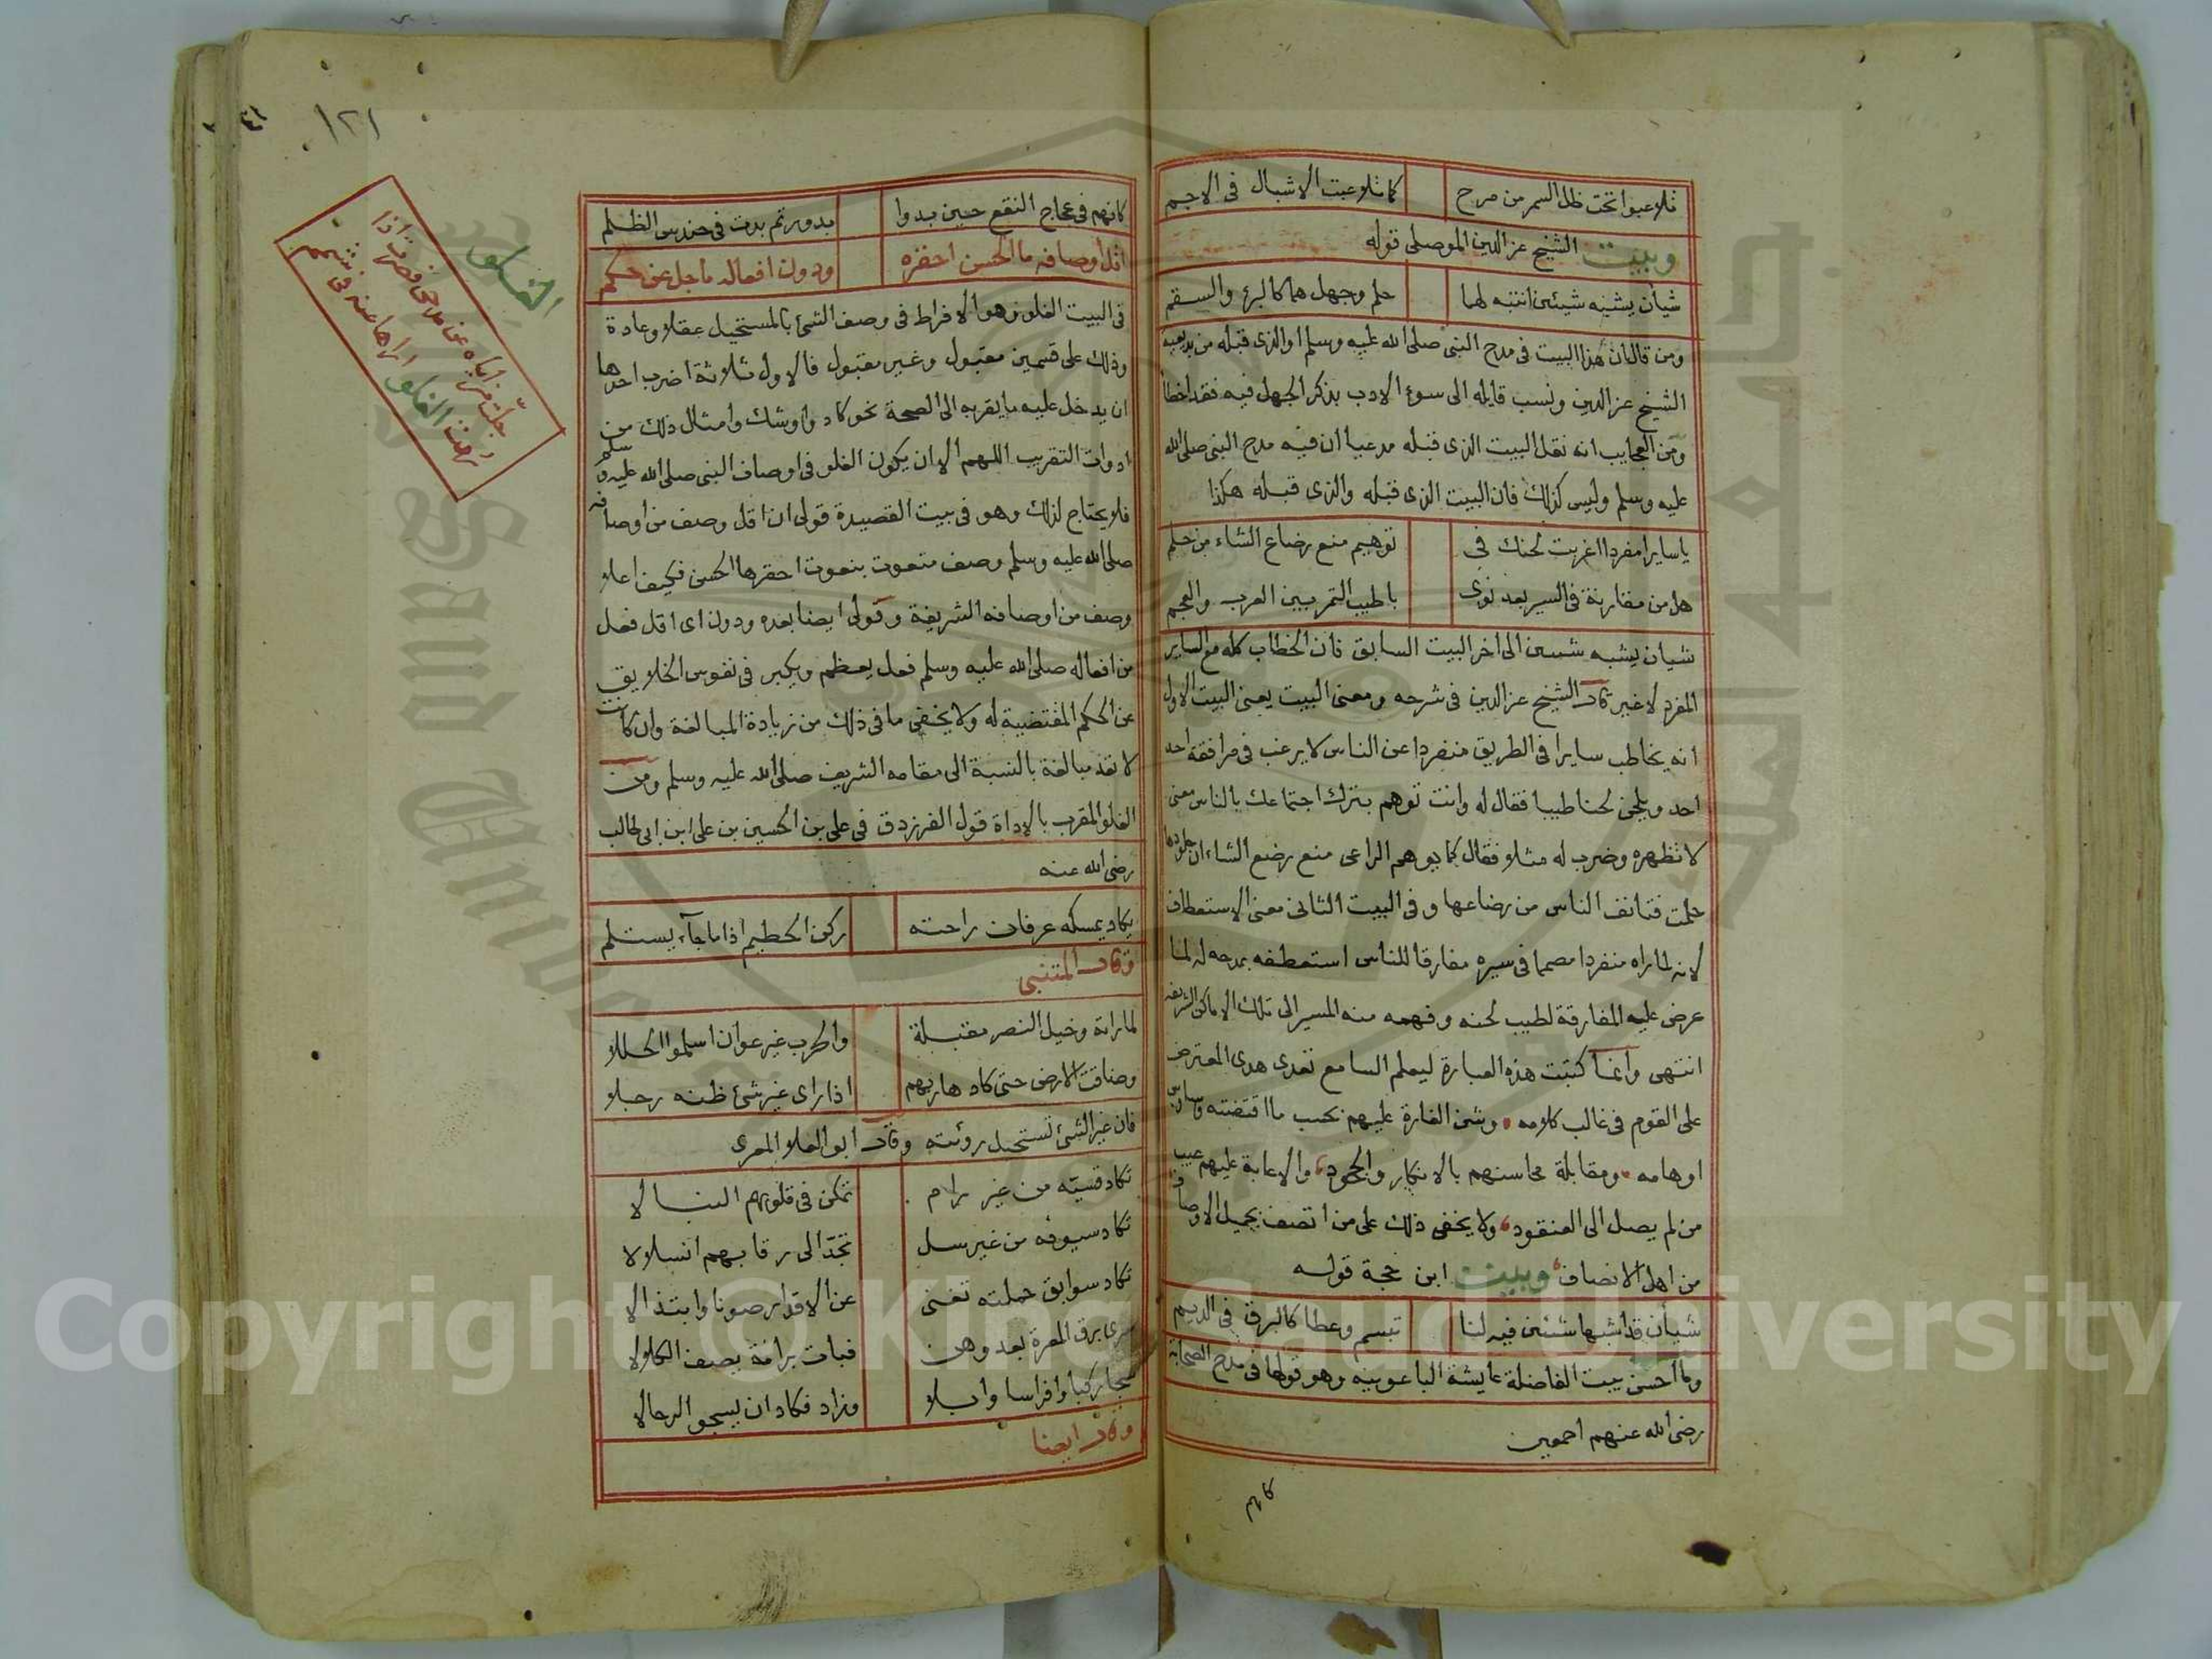 تلاعبوا تحت ظل السمر من مرح كما تلاعبت الاشبال فى الاجم
وبيت الشيخ عز الدين الموصلى قوله
شيأن يشبه شيئين انتبه لهما حلم وجهل هما كالبرء والسقم
ومن قال ان هذا البيت فى مدح النبى صلى الله عليه وسلم او الذى قبله من بديعية
الشيخ عز الدين ونسب قايله الى سوء الادب بذكر الجهل فيه فقد اخطأ
ومن العجايب انه نقل البيت الذى قبله مدعيا ان فيه مدح النبى صلى الله
عليه وسلم وليس كذلك فان البيت الذى قبله والذى قبله هكذا
ياسايرا مفردا اغربت لحنك فى توهيم منع رضاع الشاء من حلم
هل من مقارنة فى السير بعد نوى باطيب التمر بين العرب والعجم
شيان يشبه شيئين الى اخر البيت السابق فان الخطاب كله مع الساير
المفرد لا غير قال الشيخ عز الدين فى شرحه ومعنى البيت يعنى البيت الاول
انه يخاطب سايرا فى الطريق منفردا عن الناس لا يرغب فى مرافقة احد
احد ويلحن لحنا طيبا فقال له وانت توهم بترك اجتماعك بالناس معنى
لا تظهره وضرب له مثلا فقال كما يوهم الراعى منع رضع الشاء ان جلودها
حلمت فتانف الناس من رضاعها وفى البيت الثانى معنى الاستعطاف
لانه لما راه منفردا مصمما فى سيره مفارقا للناس استعطفه بمدحه له لما
عرض عليه المفارقة لطيب لحنه وفهمه منه المسير الى تلك الاماكن الشريفه
انتهى وانما كتبت هذه العبارة ليعلم السامع تعدى هدى المعترض
على القوم فى غالب كلامه وشن الغارة عليهم بحسب ما اقتضته وساوس
اوهامه ومقابلة محاسنهم بالانكار والجحود والاعابة عليهم عيب
من لم يصل الى العنقود ولا يخفى ذلك على من اتصف بجميل الاوصاف
من اهل الانصاف وبيت ابن حجة قوله
شيأن قد اشبها شيئين فيه لنا تبسم وعطا كالبرق فى الديم
وما احسن بيت الفاضلة عايشة الباعونيه وهو قولها فى مدح الصحابة
رضى الله عنهم اجمعين
كانهم
١٢١
كانهم فى عجاج النقع حين بدوا بدور تم بدت فى حندس الظلم
اقل اوصافه ما الحسن احقره ودون افعاله ما جل عن حكم
الغلو
جلت مزاياه عن مدحى قصرت اذا
رمت الغلو اراها عنه فى شمم
فى البيت الغلو وهو الافراط فى وصف الشئ بالمستحيل عقلا وعادة
وذلك على قسمين مقبول وغير مقبول فالاول ثلاثة اضرب احدها
ان يدخل عليه ما يقربه الى الصحة نحو كاد واوشك وامثال ذلك من
ادوات التقريب اللهم الا ان يكون الغلو فى اوصاف النبى صلى الله عليه وسلم
فلا يحتاج لذلك وهو فى بيت القصيدة قولى ان اقل وصف من اوصافه
صلى الله عليه وسلم وصف منعوت بنعوت احقرها الحسن فكيف اعلا
وصف من اوصافه الشريفة وقولى ايضا بعده ودون اى اقل فعل
من افعاله صلى الله عليه وسلم فعل يعظم ويكبر فى نفوس الخلايق
عن الحكم المقتضية له ولا يخفى ما فى ذلك من زيادة المبالغة وان كانت
لا تعد مبالغة بالنسبة الى مقامه الشريف صلى الله عليه وسلم ومن
الغلو المقرب بالاداة قول الفرزدق فى على بن الحسين بن على ابن ابى طالب
رضى الله عنه
يكاد يمسكه عرفان راحته ركن الحطيم اذا ما جآء يستلم
وقال المتنبى
لما راته وخيل النصر مقبلة والحرب غير عوان اسلموا الحللا
وضاقت الارض حتى كاد هاربهم اذا راى غير شئ ظنه رجلا
فان غير الشئ تستحيل روئته وقال ابو العلا المعرى
تكاد قسيّه من غير رام تمكن فى قلوبهم النبالا
تكاد سيوفه من غير سل تجدّ الى رقابهم انسلالا
تكاد سوابق حملته تغنى عن الاقدار صونا وابتذالا
سرى برق المعرة بعد وهن فبات برامة يصف الكلالا
شجا ركبا وافراسا وابلا وزاد فكاد ان يسجو الرحالا
وقال ايضا